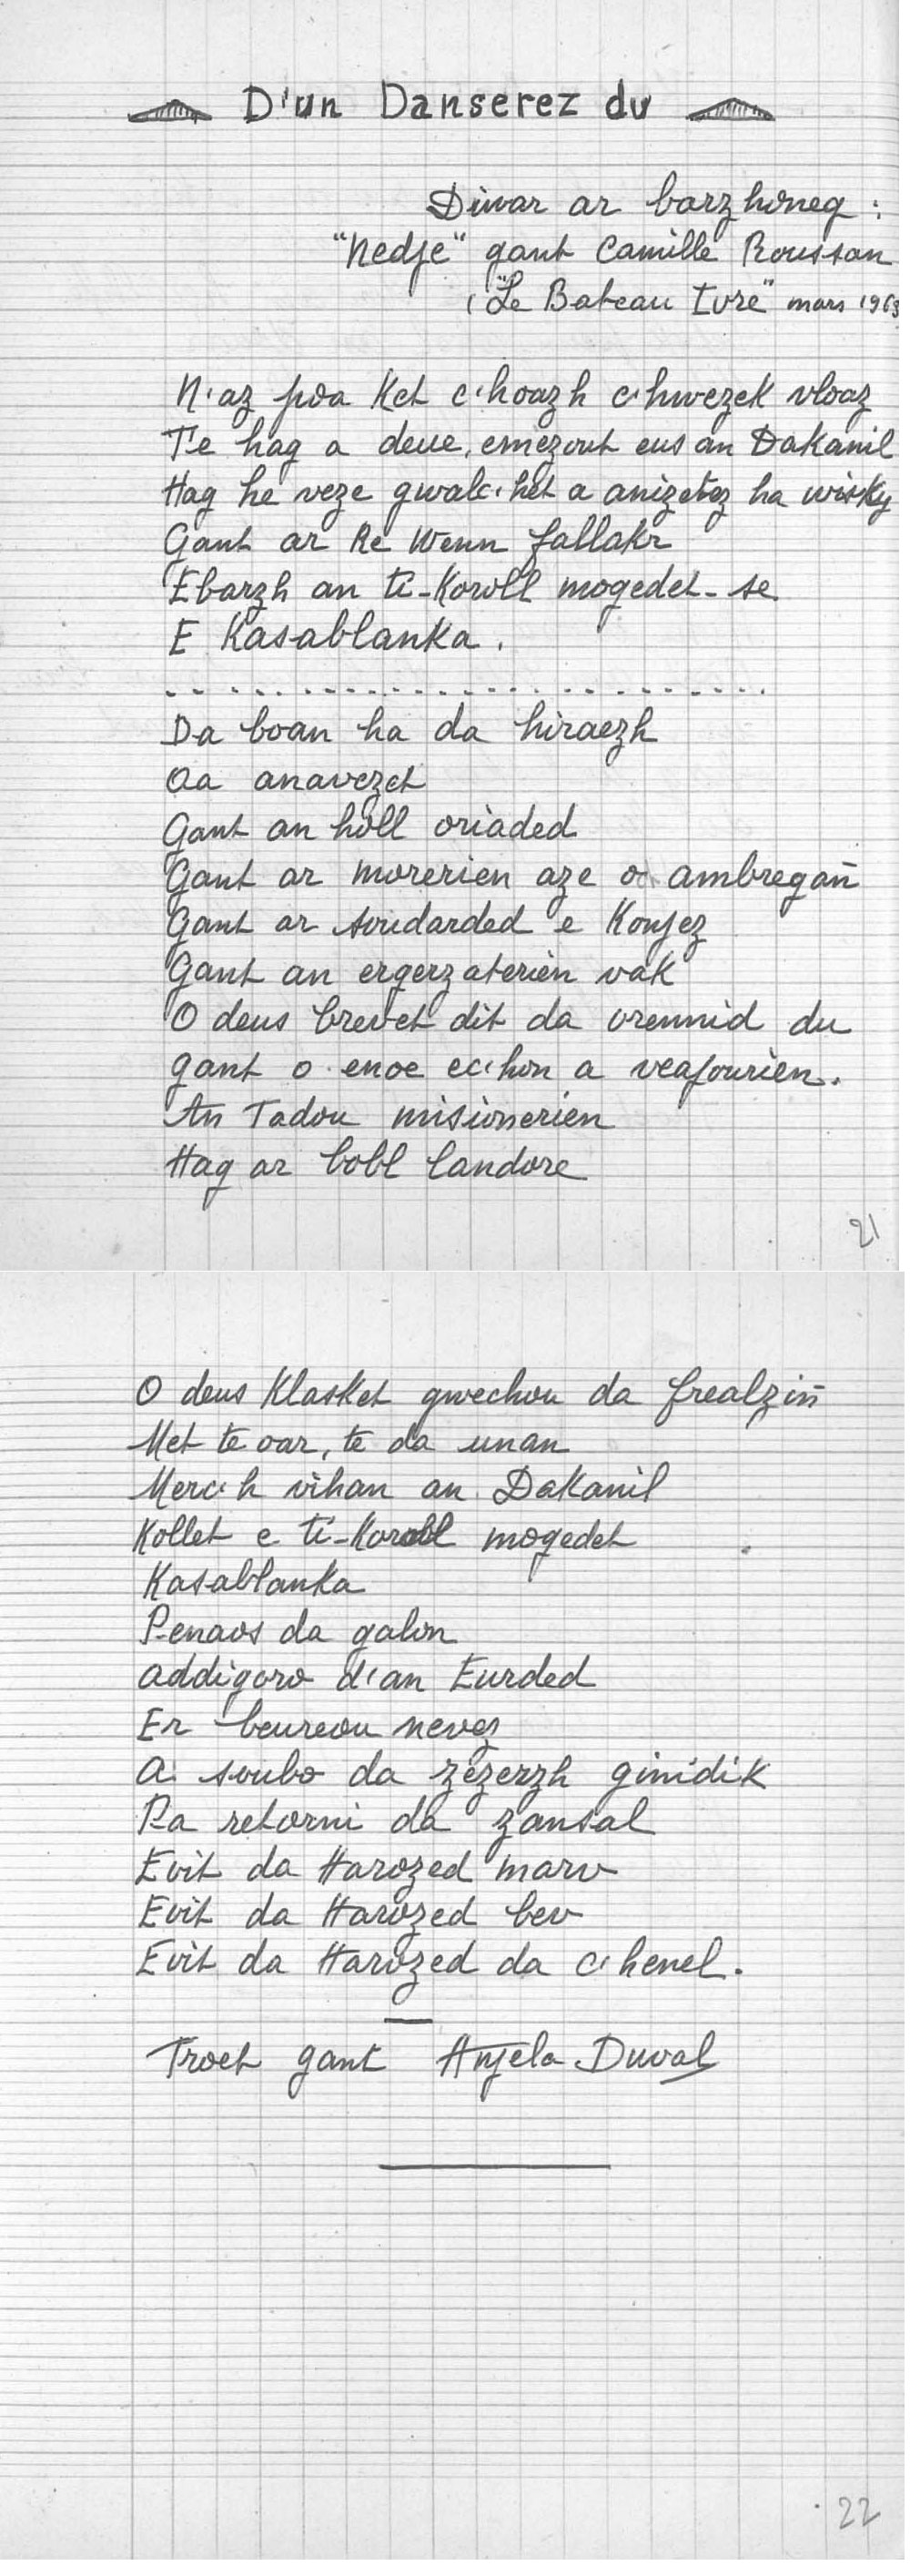 D'un Danserez du
Diwar ar barzhoneg :
"Nedje" gant Camille Roussan
("Le Bateau Ivre" mars 1963
N'az poa ket c'hoazh c'hwezek vloaz
Te hag a deue, emezout eus an Dakanil
Hag he veze gwalc'het a anizetez ha wisky
Gant ar Re Wenn fallakr
Ebarzh an ti-Koroll mogedet-se
E Kasablanka.
Da boan ha da hiraezh
Oa anavezet
Gant an holl oriaded
Gant ar morerien aze o ambregañ
Gant ar soudarded e Konjez
Gant an ergerzaterien vak
O deus brevet dit da vrennid du
gant o enoe ec'hon a veajourien.
An Tadou misionerien
Hag ar bobl landore
21
O deus Klasket gwechou da frealziñ
Met te oar, te da unan
Merc'h vihan an Dakanil
Kollet e ti-Koroll mogedet
Kasablanka
Penaos da galon
addigoro d'an Eurded
Er beureou nevez
A soubo da zezerzh ginidik
Pa retorni da zansal
Evit da Harozed marv
Evit da Harozed bev
Evit da Harozed da c'henel.
Troet gant Anjela Duval
22